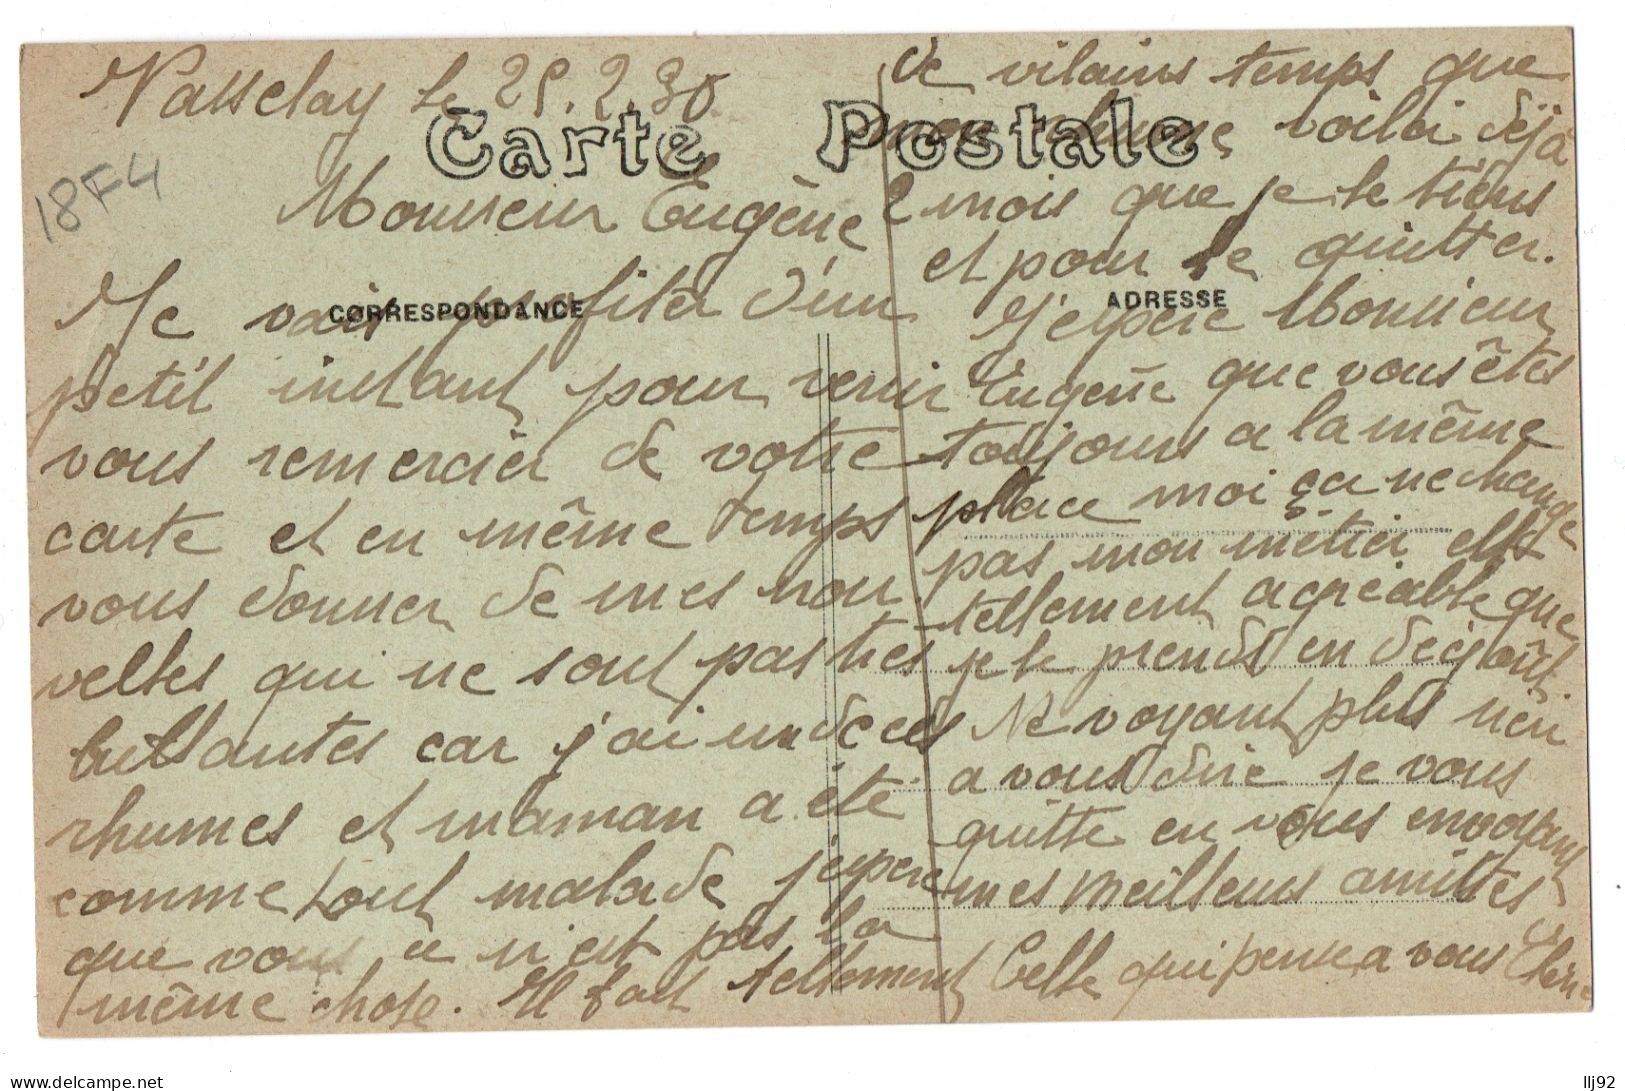 Vasselay le 25.2.30
18F4
Carte Postale
Monsieur Eugène
CORRESPONDANCE
Je vais profiter d'un
petit instant pour venir
vous remercier de votre
carte et en même temps
vous donner de mes nou
velles qui ne sont pas très
brillantes car j'ai un de ces
rhumes et maman a été
comme tout malade j'espere
que vous ce n'est pas la
même chose. Il fait tellement
de vilains temps que
mon rhume voila déjà
2 mois que je le tiens
et pour le quitter.
ADRESSE
J'espere Monsieur
Eugène que vous êtes
toujours a la même
place moi ça ne change
pas mon métier elle
tellement agréable que
je le prends en degoût
Ne voyant plus rien
a vous dire je vous
quitte en vous envoyant
mes meilleurs amitiés
Celle qui pense a vous
delcampe.net
llj92